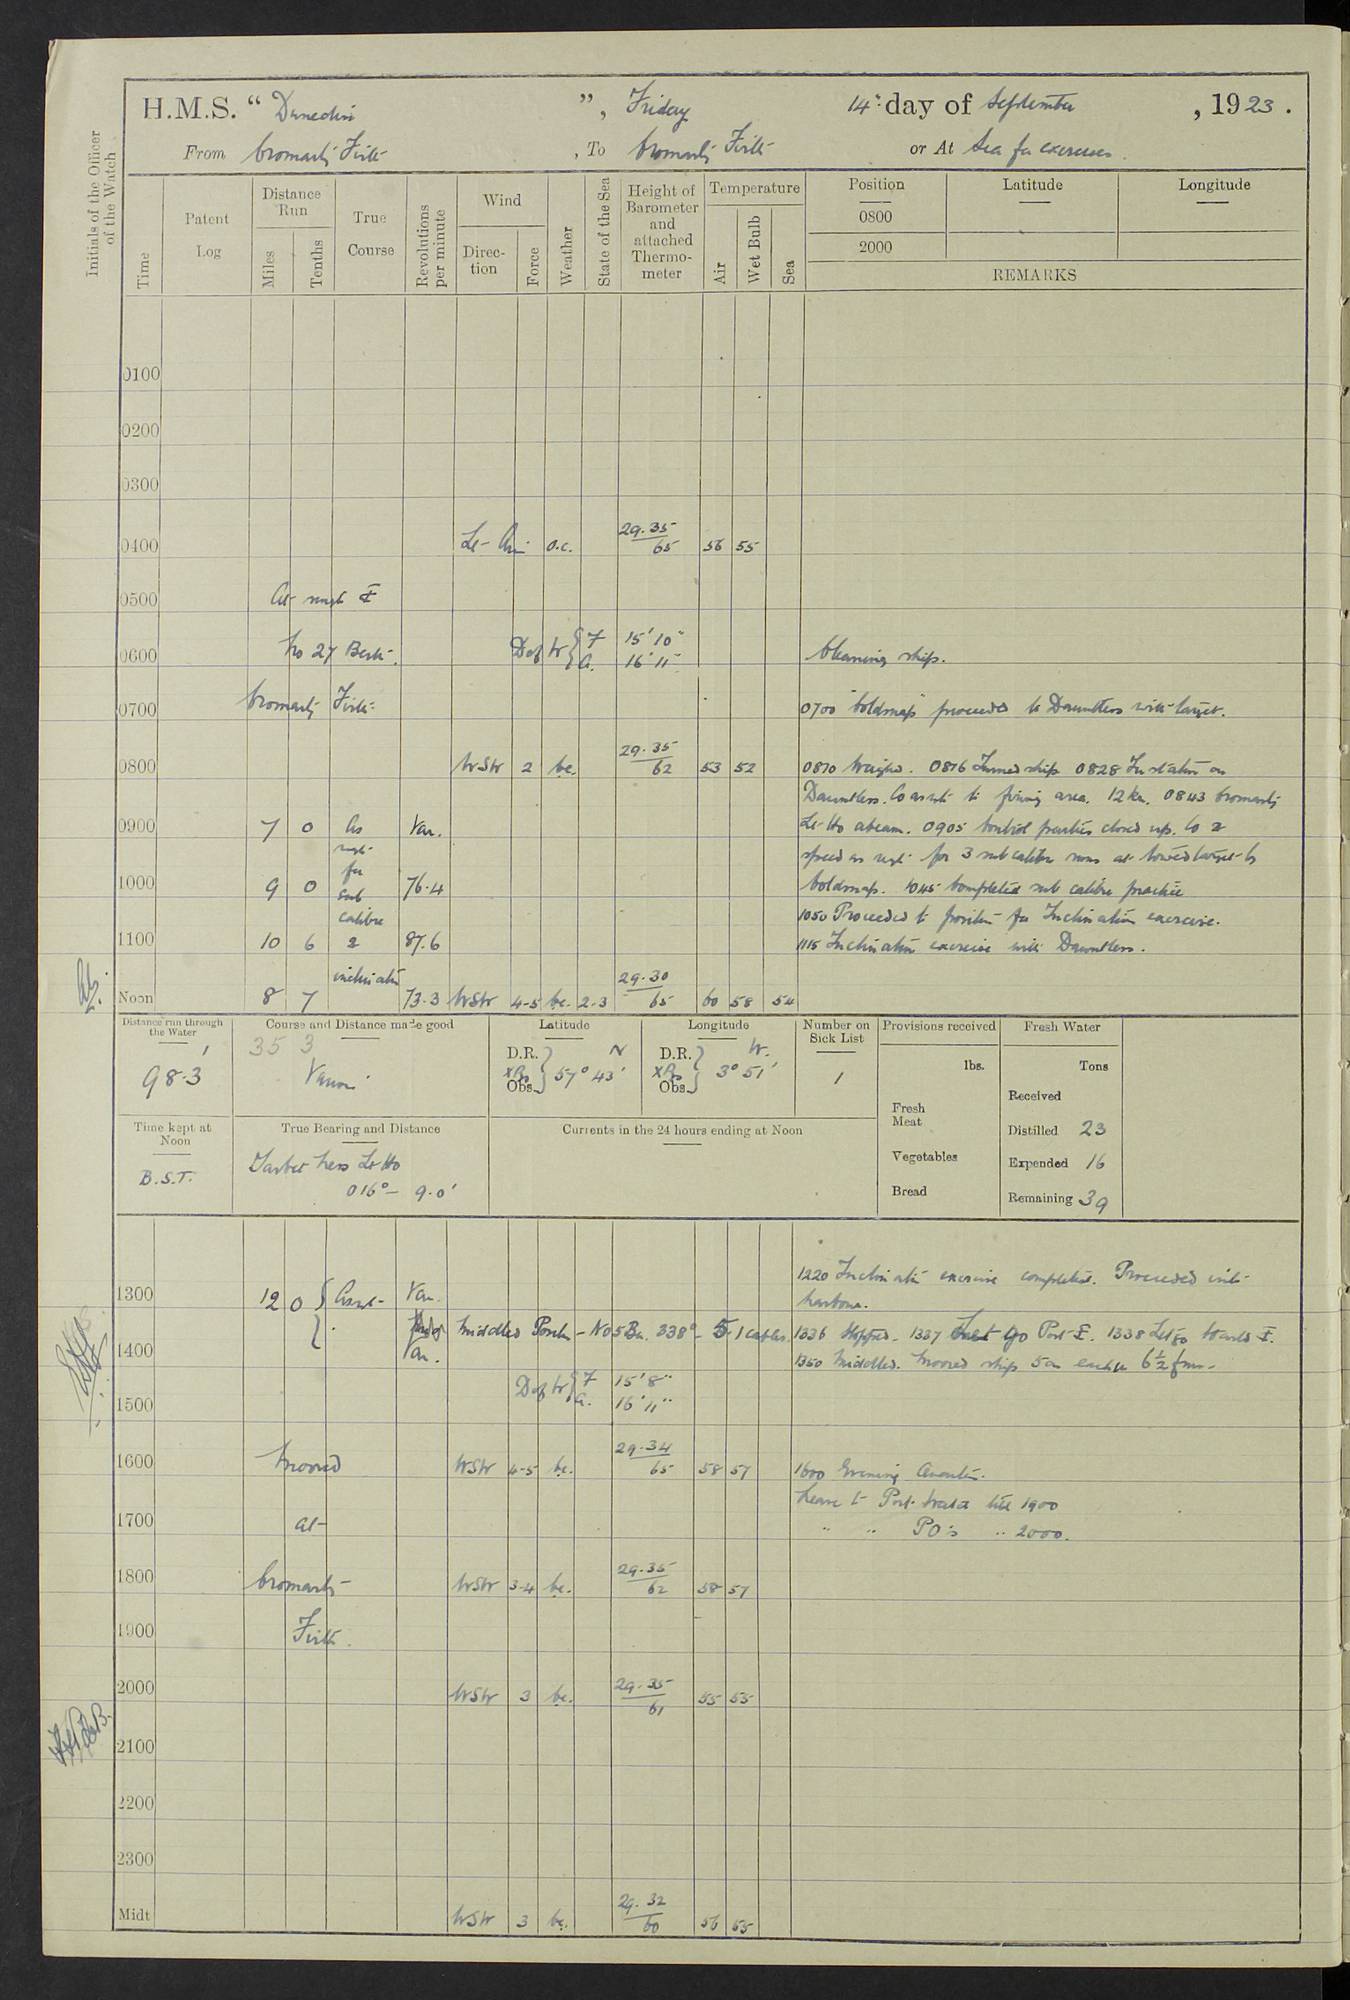 H.M.S. “ Dunedin ”, Friday 14th day of September, 1923.
From Cromarty Firth, To Cromarty Firth or At Sea for exercises.
Initials of the Officer of the Watch
Time
Patent Log
Distance Run
Miles
Tenths
True Course
Revolutions per minute
Wind
Direction
Force
Weather
State of the Sea
Height of Barometer and attached Thermometer
Temperature
Air
Wet Bulb
Sea
Position
Latitude
Longitude
0800
2000
REMARKS
0100
0200
0300
0400 Lt Airs o.c. 29.35 65 56 55
0500 At single
0600 No 27 Berth. D of W { F 15' 10" A. 16' 11" Cleaning ship.
0700 Cromarty Firth. 0700 "Coldsnap" proceeded to Dauntless with target.
0800 WSW 2 bc. 29.35 62 53 52 0810 Weighed. 0816 Turned ship 0828 In station on
Dauntless. Co as reqte to firing area. 12 kn. 0843 Cromarty
0900 7 0 As Var. Lt Ho abeam. 0905 Control parties closed up. Co &
reqt for speed as reqt for 3 sub calibre runs at towed target by
1000 9 0 sub 76.4 Coldsnap. 1045 Completed sub calibre practice
calibre 1050 Proceeded to position for Inclination exercise.
1100 10 6 & 87.6 1115 Inclination exercise with Dauntless.
inclination 29.30
Noon 8 7 73.3 WSW 4-5 bc. 2-3 65 60 58 54
Distance run through the Water
98.3
Course and Distance made good
35 3
Various
Latitude
D.R. Obs. 57° 43' N
Longitude
D.R. Obs. 3° 51' W.
Number on Sick List
1
Provisions received
lbs.
Fresh Meat
Vegetables
Bread
Fresh Water
Tons
Received
Distilled 23
Expended 16
Remaining 39
Time kept at Noon
B.S.T.
True Bearing and Distance
Tarbet Ness Lt Ho
016° - 9.0'
Currents in the 24 hours ending at Noon
1220 Inclination exercise completed. Proceeded into
1300 12 0 Var. harbour.
Middled Posn - No 5 Bn. 338° - 5.1 cables. 1336 Stopped. 1337 Let go Port. 1338 Let go Starbd.
1400 Var. 1350 Middled. Moored ship 5 on each in 6½ fms.
D of W { F 15' 8"
1500 A. 16' 11"
1600 Moored WSW 4-5 bc. 29.34 65 58 57 1600 Evening Quarters.
Leave to Port Watch till 1900
1700 at " " PO's " 2000.
1800 Cromarty WSW 3-4 bc. 29.35 62 58 57
1900 Firth.
2000 WSW 3 bc. 29.35 61 55 53
2100
2200
2300
Midt WSW 3 bc. 29.32 60 56 55